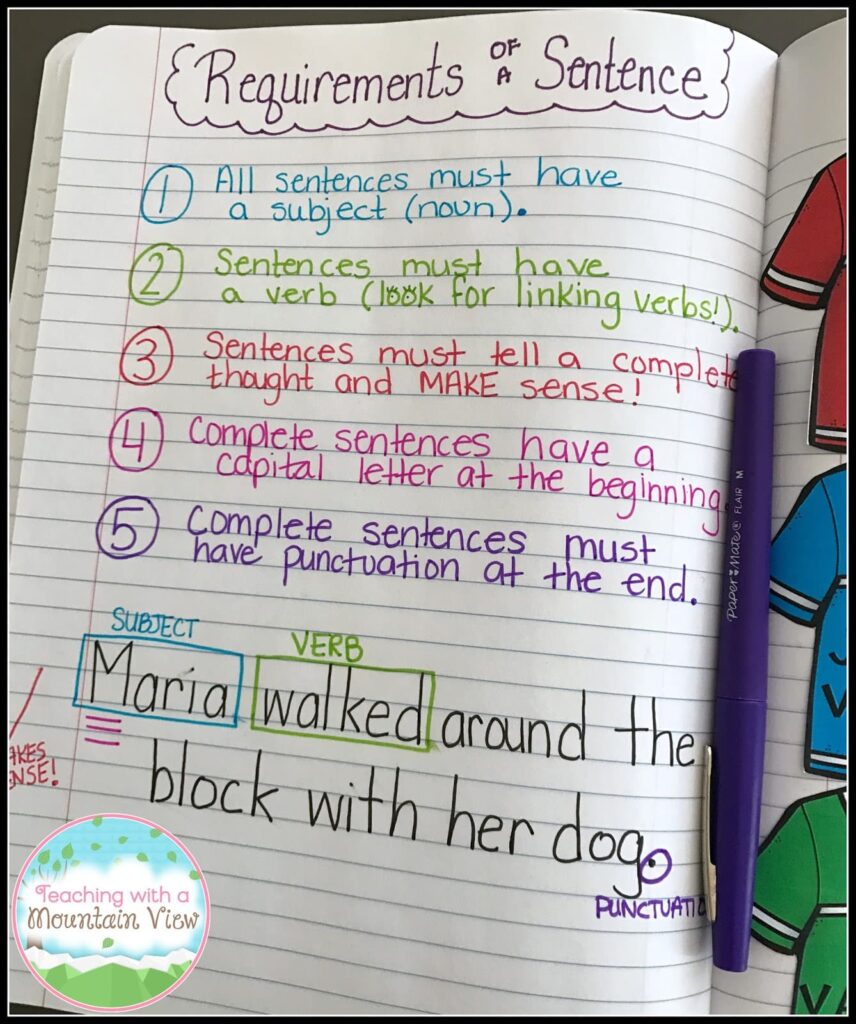 Requirements OF A Sentence
1 All sentences must have
a subject (noun).
2 Sentences must have
a verb (look for linking verbs!).
3 Sentences must tell a complete
thought and MAKE sense!
4 Complete sentences have a
capital letter at the beginning.
5 Complete sentences must
have punctuation at the end.
SUBJECT VERB
Maria walked around the
block with her dog.
Teaching with a
Mountain View
Paper Mate® FLAIR M